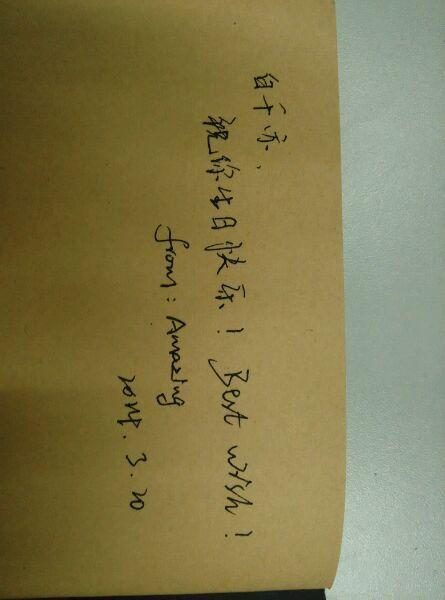 白千亦,
祝你生日快乐! Best wish!
from: Amazing
2014.3.20